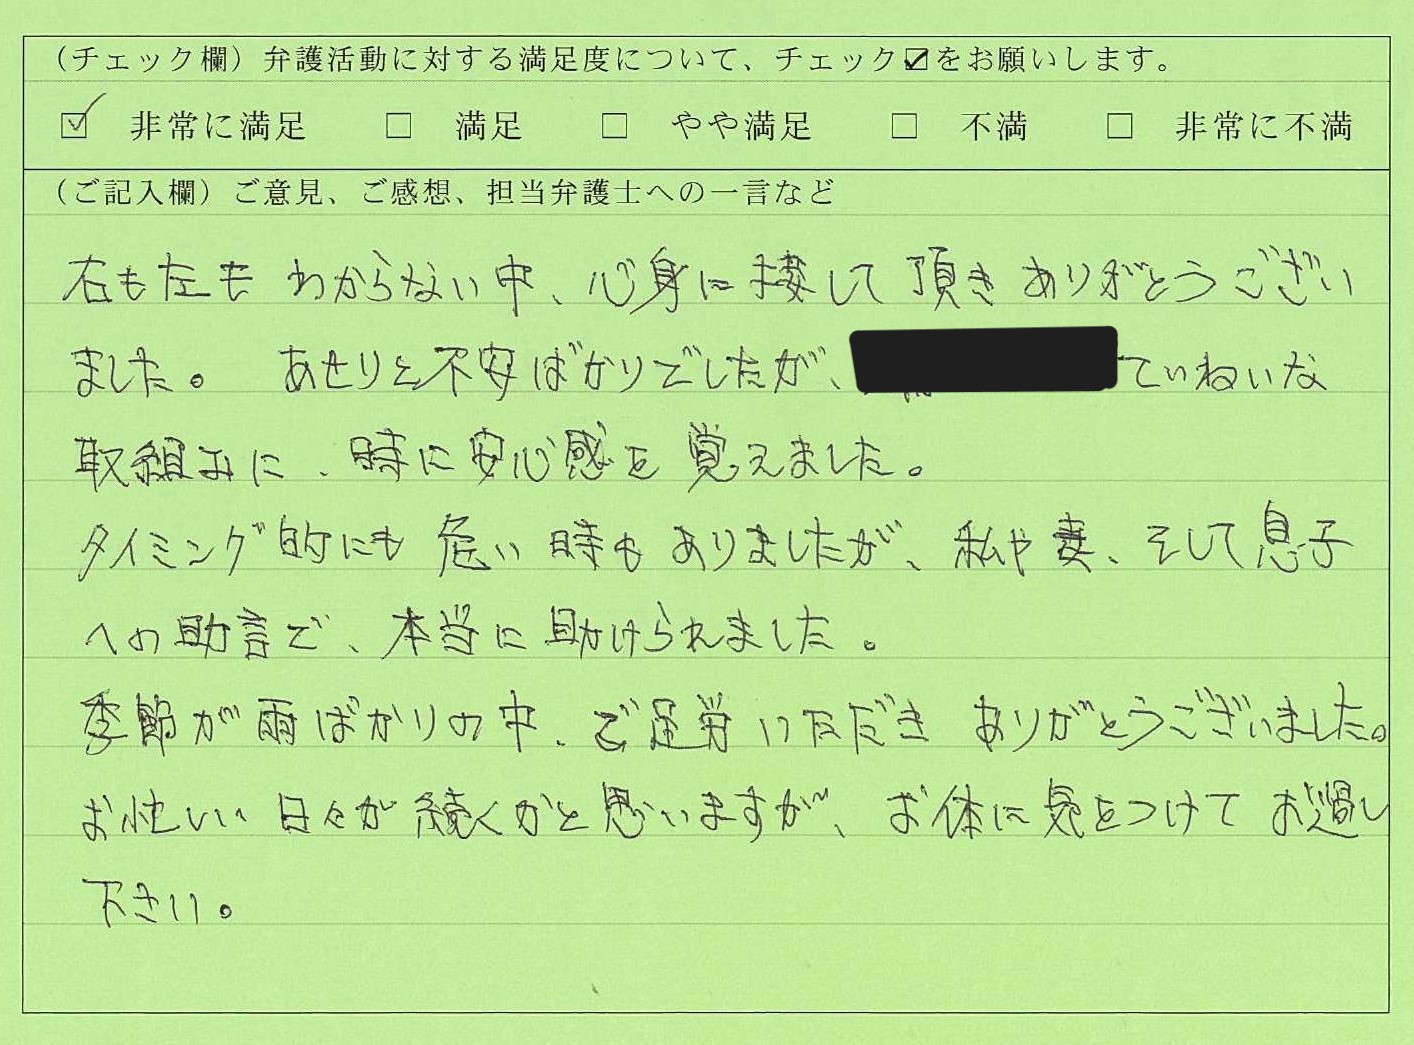 （チェック欄）弁護活動に対する満足度について、チェック☑をお願いします。
☑ 非常に満足 □ 満足 □ やや満足 □ 不満 □ 非常に不満
（ご記入欄）ご意見、ご感想、担当弁護士への一言など
右も左もわからない中、心身に接して頂きありがとうござい
ました。 あせりと不安ばかりでしたが、ていねいな
取組みに、時に安心感を覚えました。
タイミング的にも危い時もありましたが、私や妻、そして息子
への助言で、本当に助けられました。
季節が雨ばかりの中、ご足労いただきありがとうございました。
お忙しい日々が続くかと思いますが、お体に気をつけてお過し
下さい。